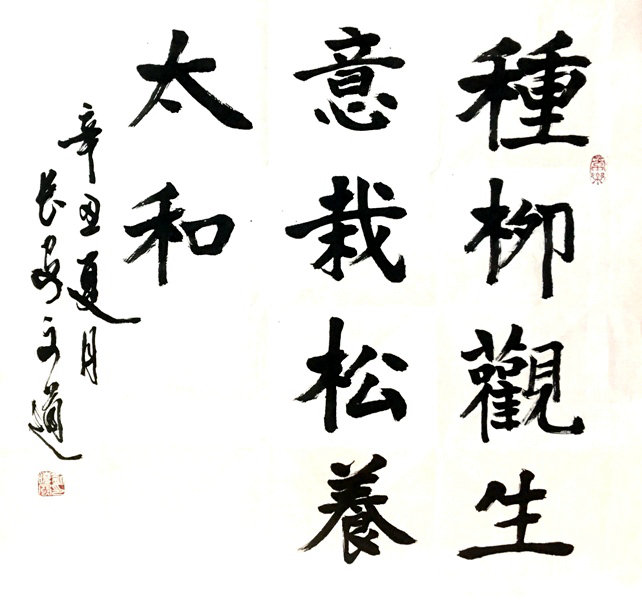 種柳觀生
意栽松養
太和
辛丑夏月
長安文道